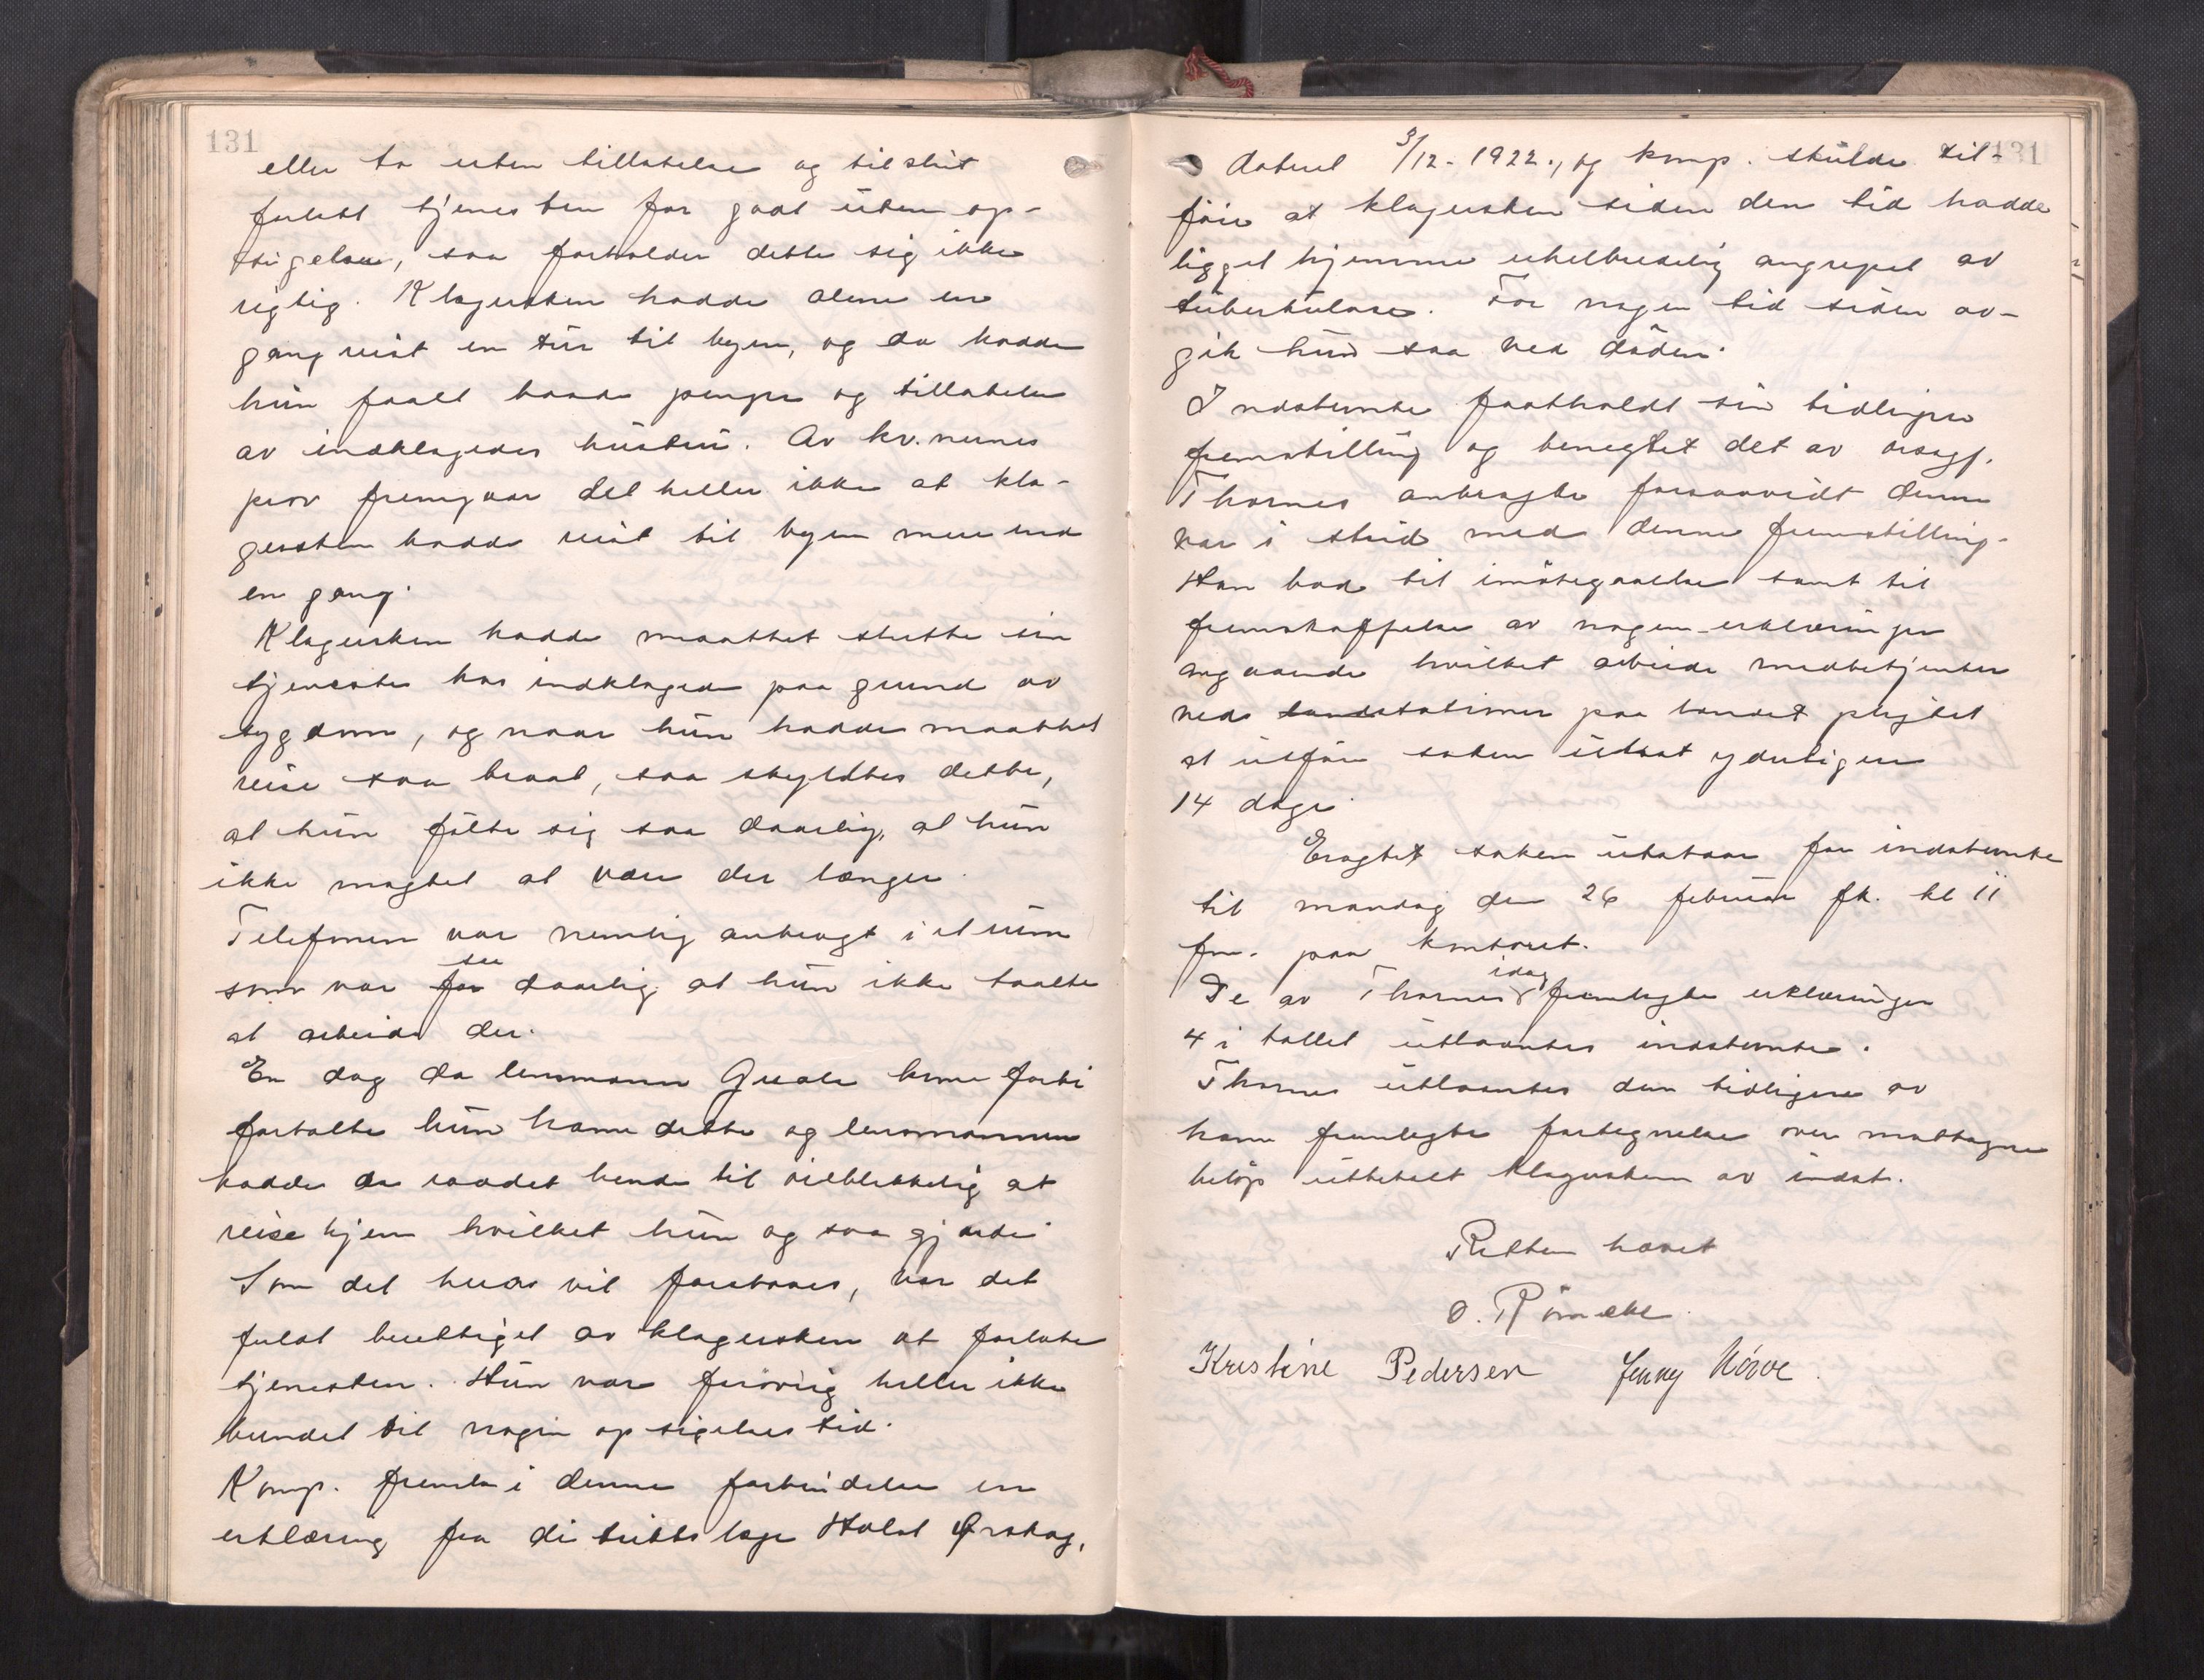 131
eller to uten tillatelse og tilslut
forlatt tjenesten for godt uten op-
sigelse, saa forholder dette sig ikke
rigtig. Klagersken hadde alene en
gang reist en tur til byen, og da hadde
hun faatt baade penger og tillatelse
av indklagedes hustru. Av kv.nernes
prov fremgaar det heller ikke at kla-
gersken hadde reist til byen mere end
en gang.
Klagersken hadde maattet slutte sin
tjeneste hos indklagede paa grund av
sygdom, og naar hun hadde maattet
reise saa braat, saa skyldtes dette,
at hun følte sig saa daarlig, at hun
ikke magtet at være der længer.
Telefonen var nemlig anbragt i et rum
som var saa daarlig at hun ikke taalte
at arbeide der.
En dag da lensmann Giske kom forbi
fortalte hun ham dette og lensmannen
hadde da raadet hende til øieblikkelig at
reise hjem hvilket hun og saa gjorde
Som det heraf vil forstaaes, var det
fuldt berettiget av klagersken at forlate
tjenesten. Hun var forøvrig heller ikke
bundet til nogen opsigelses tid.
Komp. fremla i denne forbindelse en
erklæring fra distriktslæge Holst Ørskog,
131
dateret 3/12-1922., og komp. skulde til-
føie at klagersken siden den tid hadde
ligget hjemme uhelbredelig angrepet av
tuberkulose. For nogen tid siden av-
gik hun saa ved døden.
Indstevnte fastholdt sin tidligere
fremstilling og benegtet det av orsagf.
Thornes anbragte forsaavidt denne
var i strid med denne fremstilling.
Han bad til imøtegaaelse samt til
fremskaffelse av nogen erklæringer
angaaende hvilket arbeide medbetjenter
ved landstationer paa landet pligtet
at utføre saken utsat yderligere
14 dage.
Eragtet saken utstaar for indstevnte
til mandag den 26 februar fk. kl 11
fm. paa kontoret.
De av Thornes idag fremlagte erklæringer
4 i tallet utlaantes indstevnte.
Thornes utlaantes den tidligere av
ham fremlagte fortegnelse over mottagne
beløp utbetalt klagersken av indst.
Retten hævet
O. Rømcke
Kristine Pedersen Jenny Nørve.